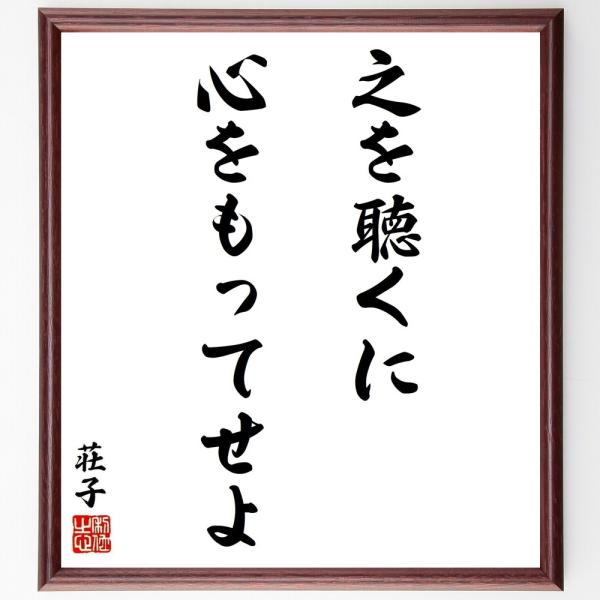 之を聴くに
心をもってせよ
荘子